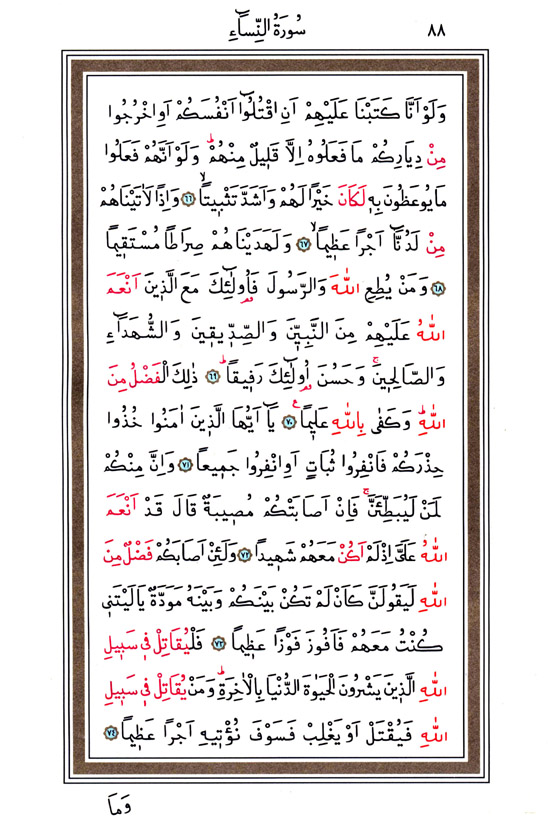 سُورَةُ النِّسَٓاءِ
٨٨
وَلَوْ اَنَّا كَتَبْنَا عَلَيْهِمْ اَنِ اقْتُلُٓوا اَنْفُسَكُمْ اَوِ اخْرُجُوا
مِنْ دِيَارِكُمْ مَا فَعَلُوهُ اِلَّا قَلٖيلٌ مِنْهُمْؕ وَلَوْ اَنَّهُمْ فَعَلُوا
مَا يُوعَظُونَ بِهٖ لَكَانَ خَيْراً لَهُمْ وَاَشَدَّ تَثْبٖيتاًۙ ﴿٦٦﴾ وَاِذاً لَاٰتَيْنَاهُمْ
مِنْ لَدُنَّٓا اَجْراً عَظٖيماًۙ ﴿٦٧﴾ وَلَهَدَيْنَاهُمْ صِرَاطاً مُسْتَقٖيماً
﴿٦٨﴾ وَمَنْ يُطِعِ اللّٰهَ وَالرَّسُولَ فَاُو۬لٰٓئِكَ مَعَ الَّذٖينَ اَنْعَمَ
اللّٰهُ عَلَيْهِمْ مِنَ النَّبِيّٖنَ وَالصِّدّٖيقٖينَ وَالشُّهَدَٓاءِ
وَالصَّالِحٖينَۚ وَحَسُنَ اُو۬لٰٓئِكَ رَفٖيقاًؕ ﴿٦٩﴾ ذٰلِكَ الْفَضْلُ مِنَ
اللّٰهِؕ وَكَفٰى بِاللّٰهِ عَلٖيماًࣖ ﴿٧٠﴾ يَٓا اَيُّهَا الَّذٖينَ اٰمَنُوا خُذُوا
حِذْرَكُمْ فَانْفِرُوا ثُبَاتٍ اَوِ انْفِرُوا جَمٖيعاً ﴿٧١﴾ وَاِنَّ مِنْكُمْ
لَمَنْ لَيُبَطِّئَنَّۚ فَاِنْ اَصَابَتْكُمْ مُصٖيبَةٌ قَالَ قَدْ اَنْعَمَ
اللّٰهُ عَلَيَّ اِذْ لَمْ اَكُنْ مَعَهُمْ شَهٖيداً ﴿٧٢﴾ وَلَئِنْ اَصَابَكُمْ فَضْلٌ مِنَ
اللّٰهِ لَيَقُولَنَّ كَاَنْ لَمْ تَكُنْ بَيْنَكُمْ وَبَيْنَهُ مَوَدَّةٌ يَا لَيْتَنٖي
كُنْتُ مَعَهُمْ فَاَفُوزَ فَوْزاً عَظٖيماً ﴿٧٣﴾ فَلْيُقَاتِلْ فٖي سَبٖيلِ
اللّٰهِ الَّذٖينَ يَشْرُونَ الْحَيٰوةَ الدُّنْيَا بِالْاٰخِرَةِؕ وَمَنْ يُقَاتِلْ فٖي سَبٖيلِ
اللّٰهِ فَيُقْتَلْ اَوْ يَغْلِبْ فَسَوْفَ نُؤْتٖيهِ اَجْراً عَظٖيماً ﴿٧٤﴾
وَمَا